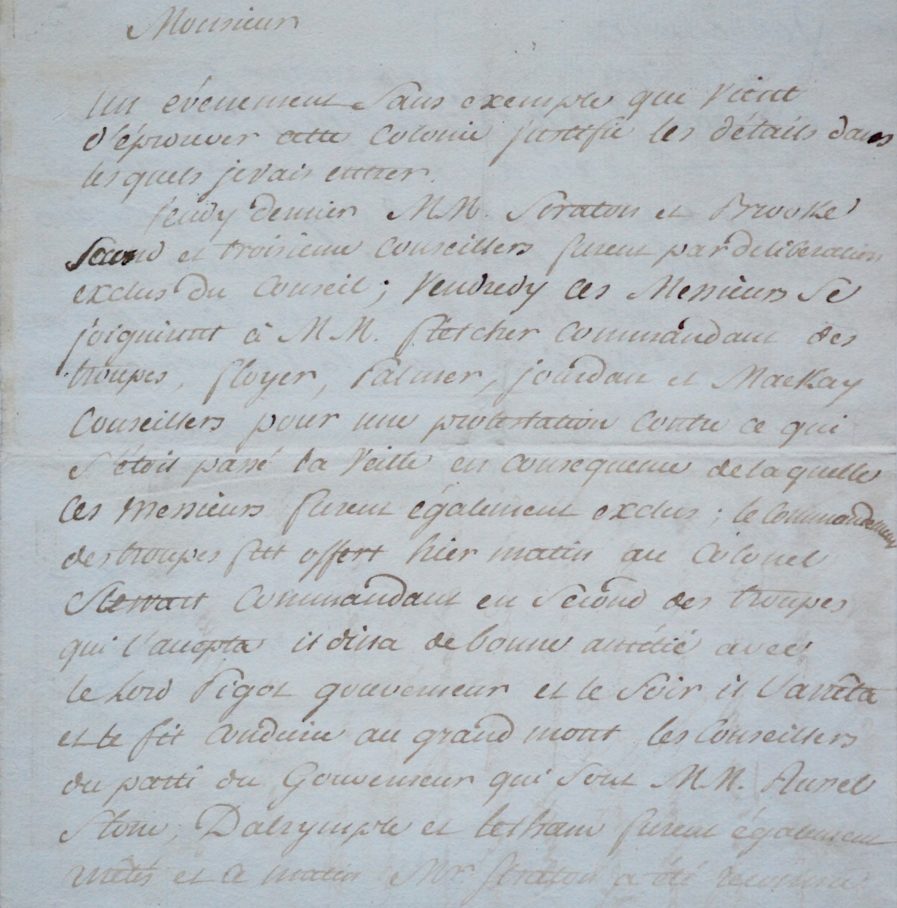 Monsieur
Un evénement sans exemple que vient
d'éprouver cette Colonie justifie les détails dans
lesquels je vais entrer.
Jeudy dernier MM. Straton et Brooke
second et troisieme Conseillers furent par deliberation
exclus du Conseil ; Vendredy ces Messieurs se
joignirent à MM. fletcher Commandant des
troupes, floyer, Palmer, jourdan et Mackay
Conseillers pour une protestation contre ce qui
s'étoit passé la Veille en consequence de laquelle
ces Messieurs furent également exclus ; le Commandement
des troupes fut offert hier matin au Colonel
Stewart Commandant en Second des troupes
qui l'accepta il dina de bonne amitié avec
le Lord Pigot gouverneur et le Soir il l'arrêta
et le fit Conduire au grand mont, les Conseillers
du parti du Gouverneur qui sont MM. Rusel
Stone, Dalrymple et Letham furent également
arrêtés et ce matin Mr. Straton a été reconnu